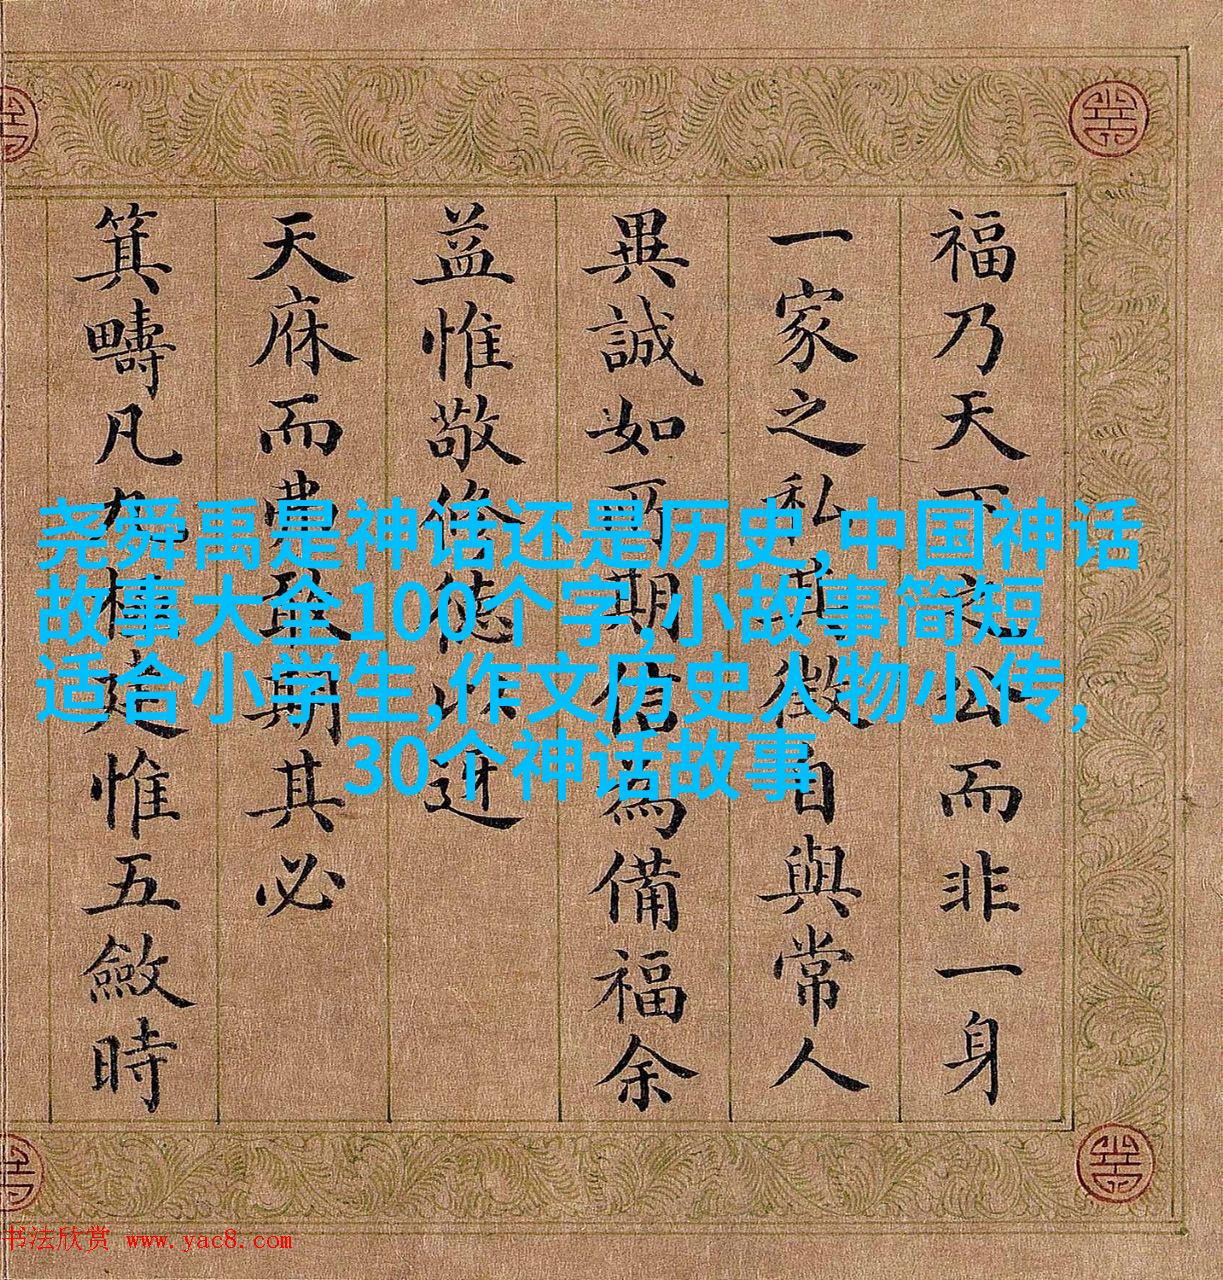 福乃天下之公而非一身
一家之私徵自與常人
異誠如期信為備福余
益惟敬修德以迓
天庥而期其必
箕疇凡九極建惟五斂時
尧舜禹是神话还是历史,中国神话
故事大全100个字,小故事简短
适合小学生,作文历史人物小传,
30个神话故事
书法欣赏 www.yac8.com